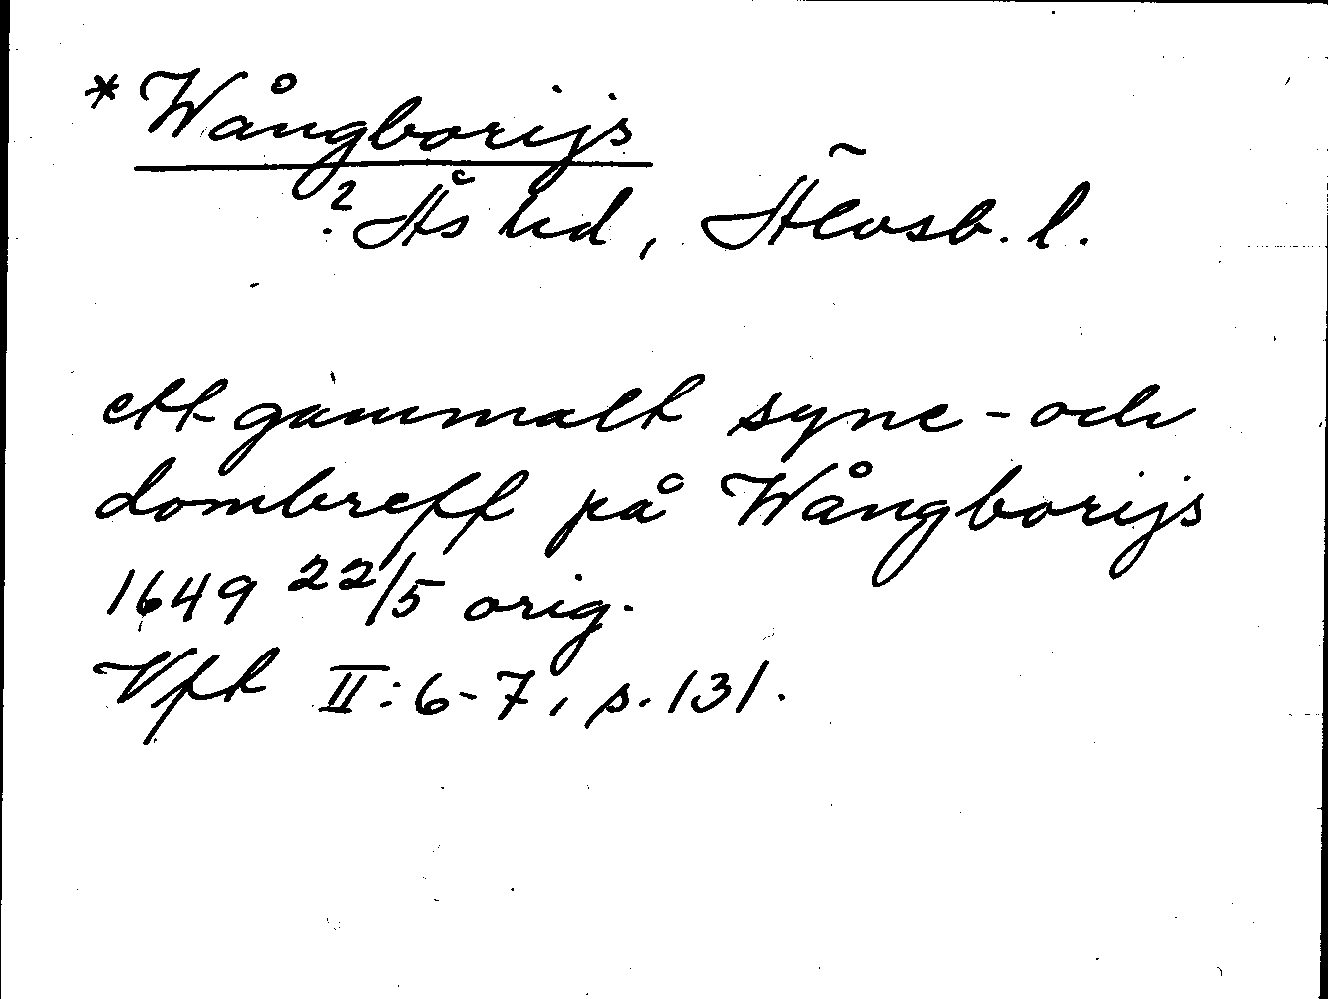 * Wångborijs
? Ås hd, Älvsb. l.
ett gammalt syne- och
dombreff på Wångborijs
1649 22/5 orig.
Vft II:6-7, s. 131.